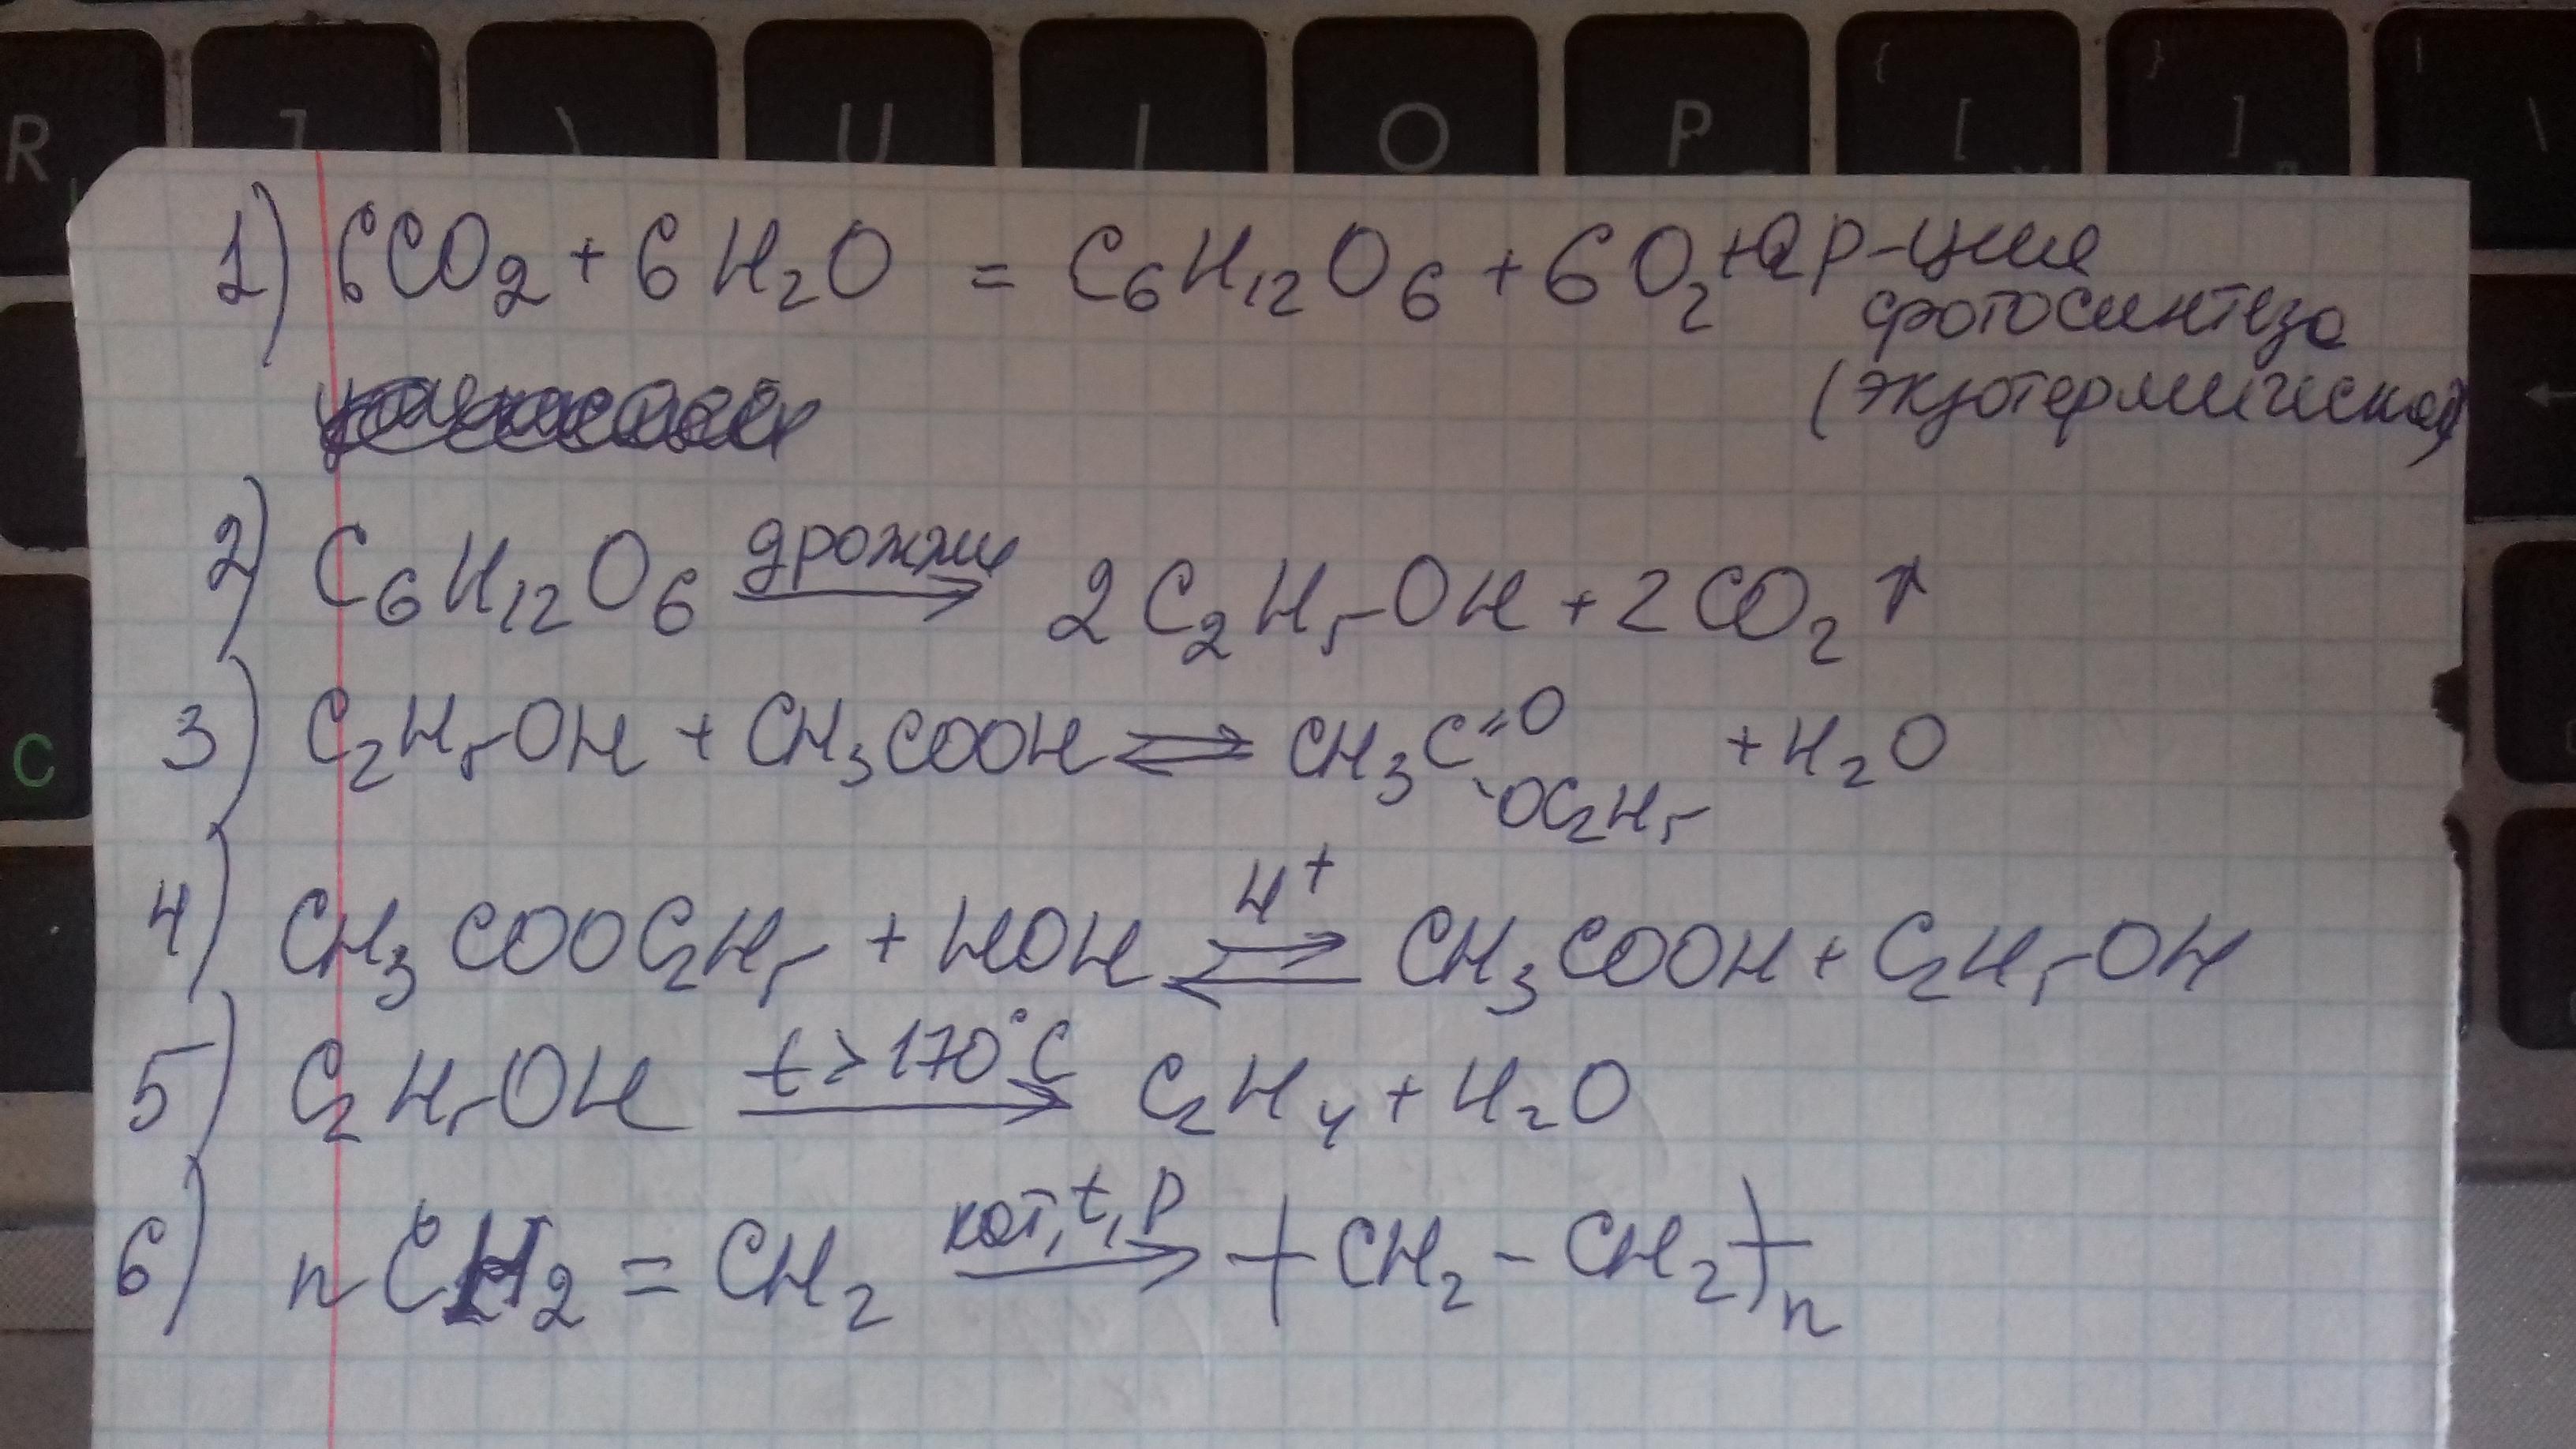 R U I O P { [ } ] | \
1) 6CO₂ + 6H₂O = C₆H₁₂O₆ + 6O₂ + Q р-ция
фотосинтеза
(экзотермическая)
2) C₆H₁₂O₆ дрожжи → 2C₂H₅OH + 2CO₂ ↑
C
3) C₂H₅OH + CH₃COOH ⇄ CH₃C=O -OC₂H₅ + H₂O
4) CH₃COOC₂H₅ + HOH H⁺ ⇄ CH₃COOH + C₂H₅OH
5) C₂H₅OH t>170°C → C₂H₄ + H₂O
6) nCH₂ = CH₂ кат, t, p → (CH₂ - CH₂)n